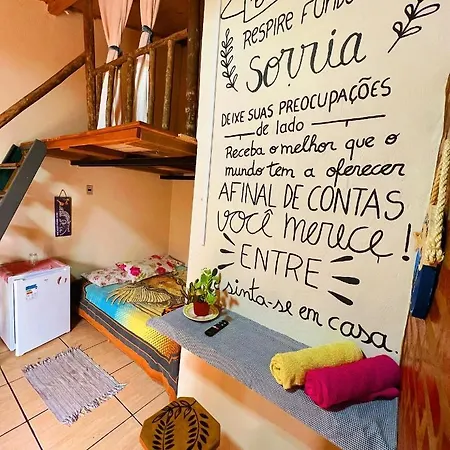 RESPIRE FUNDO
SORRIA
DEIXE SUAS PREOCUPAÇÕES
de lado
Receba o melhor que o
mundo tem a oferecer
AFINAL DE CONTAS
VOCÊ merece!
ENTRE
sinta-se em casa.